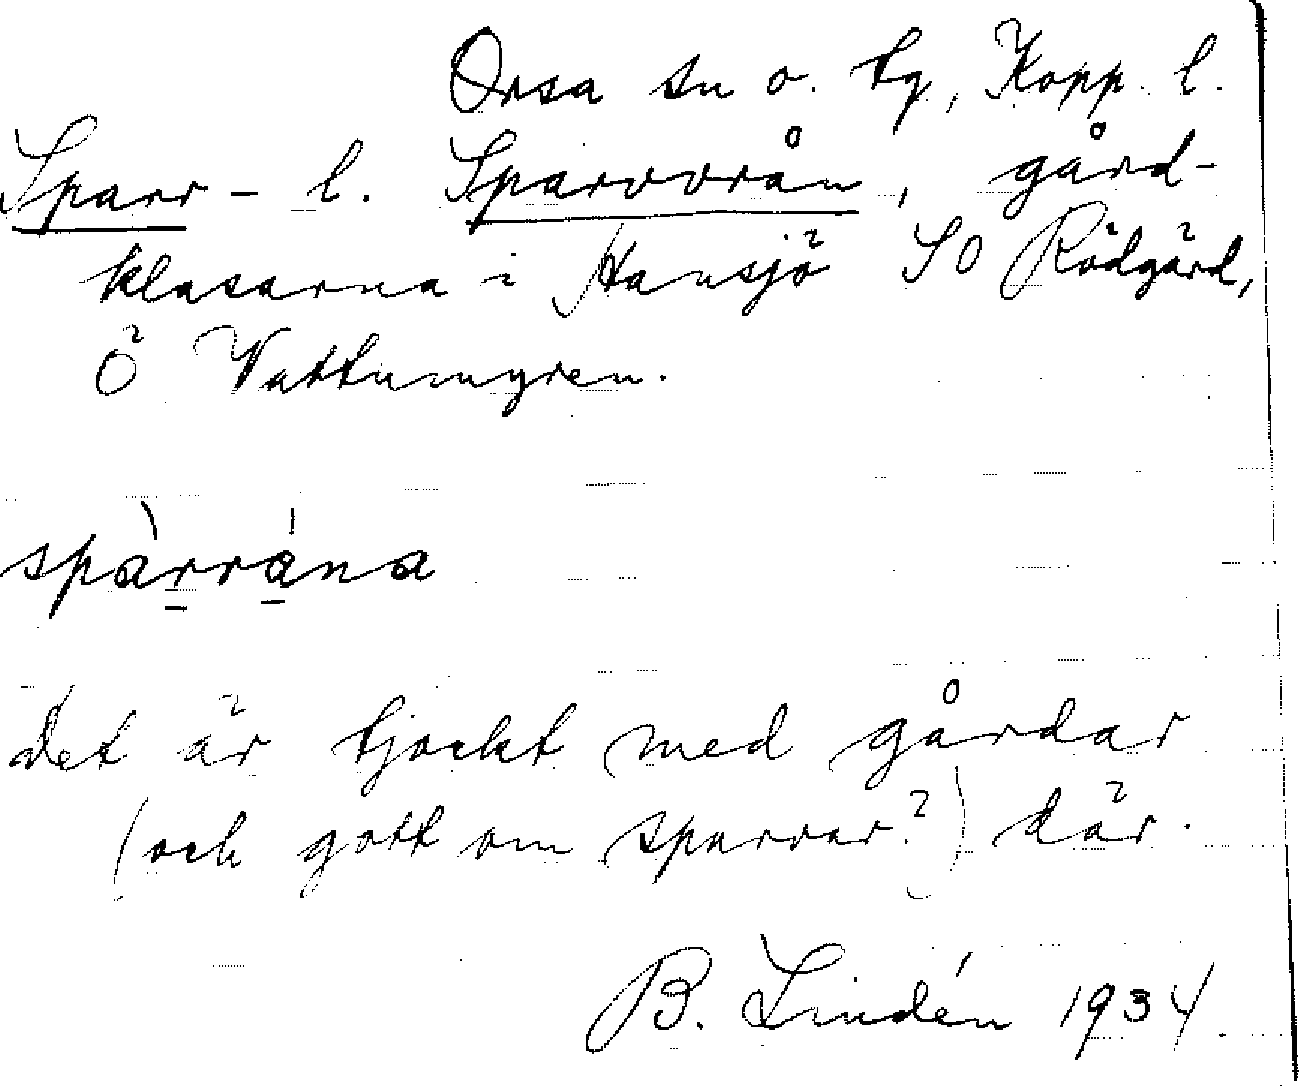 Orsa sn o. tg, Kopp. l.
Sparr- l. Sparvvrån, gård-
klasarna i Hansjö SO Rödgård,
Ö Vattumyren.
spàrrána
det är tjockt med gårdar
(och gott om sparvar?) där.
B. Lindén 1934.